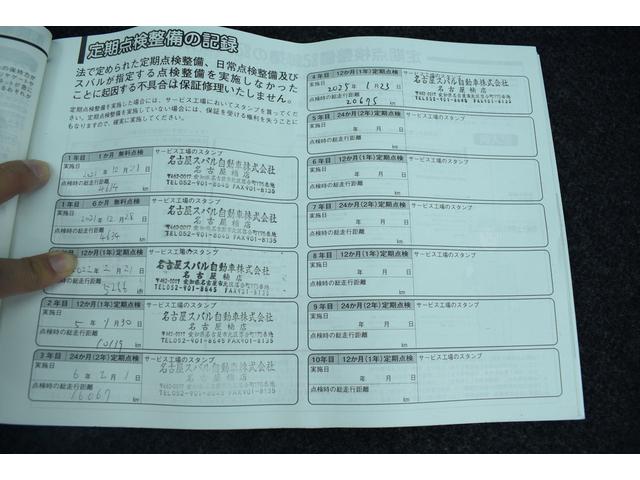 定期点検整備の記録
法で定められた定期点検整備、日常点検整備及び
スバルが指定する点検整備を実施しなかった
ことに起因する不具合は保証修理いたしません。
定期点検整備を実施した場合には、サービス工場においてスタンプを貰ってくだ
さい。定期点検整備を実施していない場合には、保証を受ける権利を失うことに
もなりますので、確実に実施してください。
1年目 1か月 無料点検 サービス工場のスタンプ
実施日
2021年12月21日
点検時の総走行距離
4614 km
名古屋スバル自動車株式会社
名古屋楠店
TEL052-901-8645 FAX901-8135
1年目 6か月 無料点検 サービス工場のスタンプ
実施日
2021年12月28日
点検時の総走行距離
4634 km
名古屋スバル自動車株式会社
名古屋楠店
TEL052-901-8645 FAX901-8135
12か月(1年)定期点検 サービス工場のスタンプ
2022年2月21日
点検時の総走行距離
5266 km
名古屋スバル自動車株式会社
名古屋楠店
TEL052-901-8645 FAX901-8135
2年目 12か月(1年)定期点検 サービス工場のスタンプ
実施日
5年1月30日
点検時の総走行距離
10119 km
名古屋スバル自動車株式会社
名古屋楠店
TEL052-901-8645 FAX901-8135
3年目 24か月(2年)定期点検 サービス工場のスタンプ
実施日
6年2月1日
点検時の総走行距離
16067 km
名古屋スバル自動車株式会社
名古屋楠店
TEL052-901-8645 FAX901-8135
4年目 12か月(1年)定期点検
実施日
2025年1月23日
点検時の総走行距離
20695 km
名古屋スバル自動車株式会社
名古屋楠店
5年目 24か月(2年)定期点検 サービス工場のスタンプ
実施日
年 月 日
点検時の総走行距離
km
6年目 12か月(1年)定期点検 サービス工場のスタンプ
実施日
年 月 日
点検時の総走行距離
km
7年目 24か月(2年)定期点検 サービス工場のスタンプ
実施日
年 月 日
点検時の総走行距離
km
8年目 12か月(1年)定期点検 サービス工場のスタンプ
実施日
年 月 日
点検時の総走行距離
km
9年目 24か月(2年)定期点検 サービス工場のスタンプ
実施日
年 月 日
点検時の総走行距離
km
10年目 12か月(1年)定期点検 サービス工場のスタンプ
実施日
年 月 日
点検時の総走行距離
km